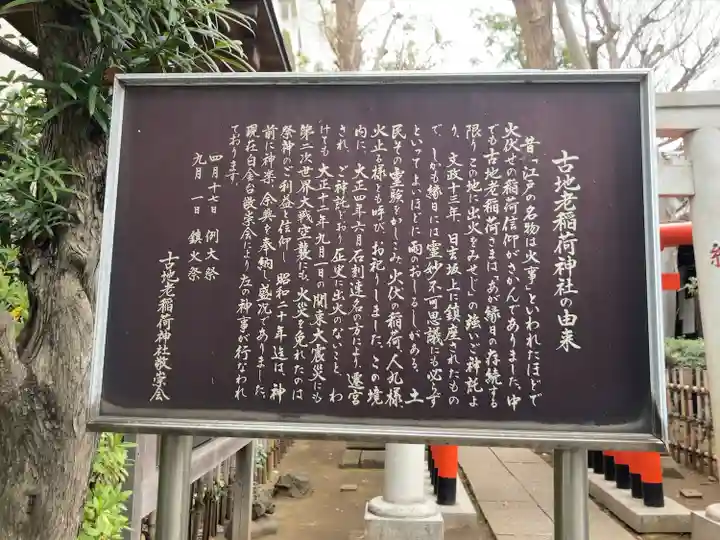 古地老稲荷神社の由来
昔「江戸の名物は火事」といわれたほどで
火伏せの稲荷信仰がさかんでありました、中
でも古地老稲荷さまは、「あが縁日の存続する
限りこの地に出火をみせじ」の強いご神託よ
り、文政十三年 日吉坂上に鎮座されたもの
で、しかも縁日には霊妙不可思議にも必らず
といってよいほどに雨のおしるしがある、土
民その霊験をかしこみ、火伏の稲荷、人丸様、
火止る様とも呼び、お祀りしました、この境
内に、大正四年六月石刻連名の方により遷宮
され、ご神託どおり近史に出火のないこと、わ
けても 大正十二年九月一日の関東大震災にも
第二次世界大戦空襲にも、火災を免れたのは
祭神のご利益と信仰し 昭和二十年迄は、神
前に神楽、余興を奉納し盛況でありました、
現在白金台敬崇会により左の神事が行なわれ
ております。
四月十七日 例大祭
九月一日 鎮火祭
古地老稲荷神社敬崇会